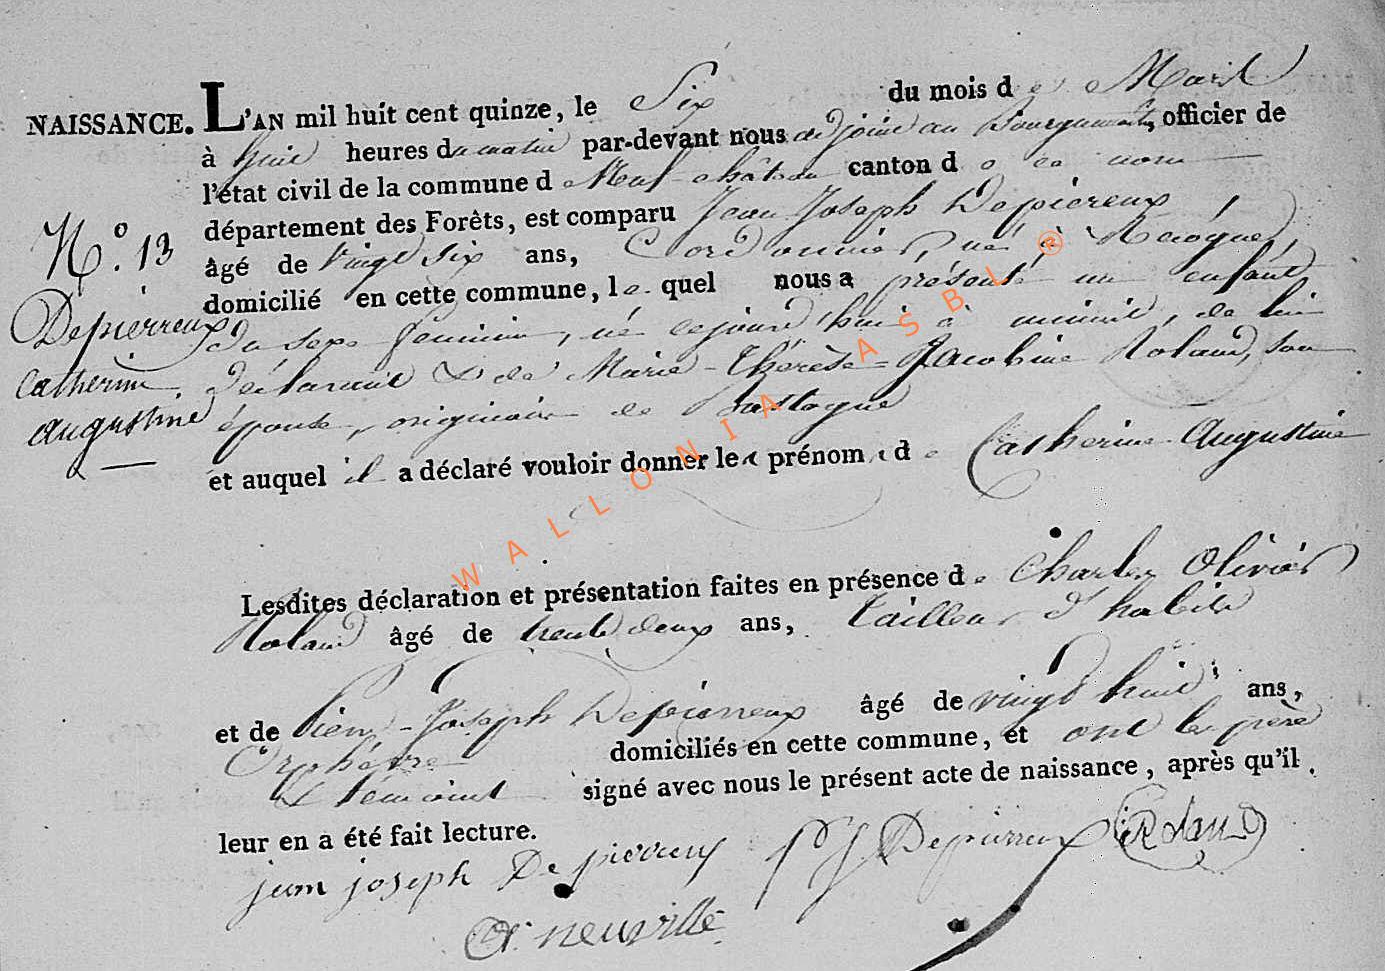 NAISSANCE. L'AN mil huit cent quinze, le Six du mois de Mars
à huit heures du matin par-devant nous adjoint au Bourguemaitre, officier de
l'état civil de la commune de Neufchâteau canton de ce nom
département des Forêts, est comparu Jean Joseph Depiereux,
âgé de vingt six ans, Cordonnier, né à
domicilié en cette commune, le quel nous a présenté un enfant
du sexe féminin, né cejourd'hui à minuit, de lui
déclarant & de Marie-Thérèse-Jacobine Roland, son
épouse, originaire de Bastogne
et auquel il a déclaré vouloir donner les prénoms de Catherine Augustine
N.° 13
Depierreux,
Catherine
Augustine
Lesdites déclaration et présentation faites en présence de Charles Olivier
Roland âgé de trente deux ans, tailleur d'habits
et de Pierre-Joseph Depierreux âgé de vingt huit ans,
Orphèvre domiciliés en cette commune, et ont les père
& temoins signé avec nous le présent acte de naissance, après qu'il
leur en a été fait lecture.
jean joseph Depiereux PJ Depierreux Roland
neuville
WALLONIA ASBL ®